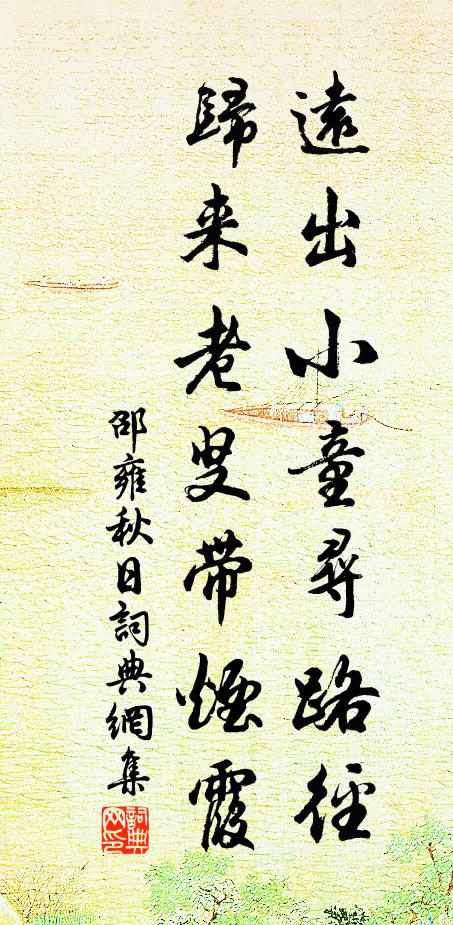 遠出小童尋路徑
歸来老叟帶煙霞
邵雍秋日詞典網集
詞典网印